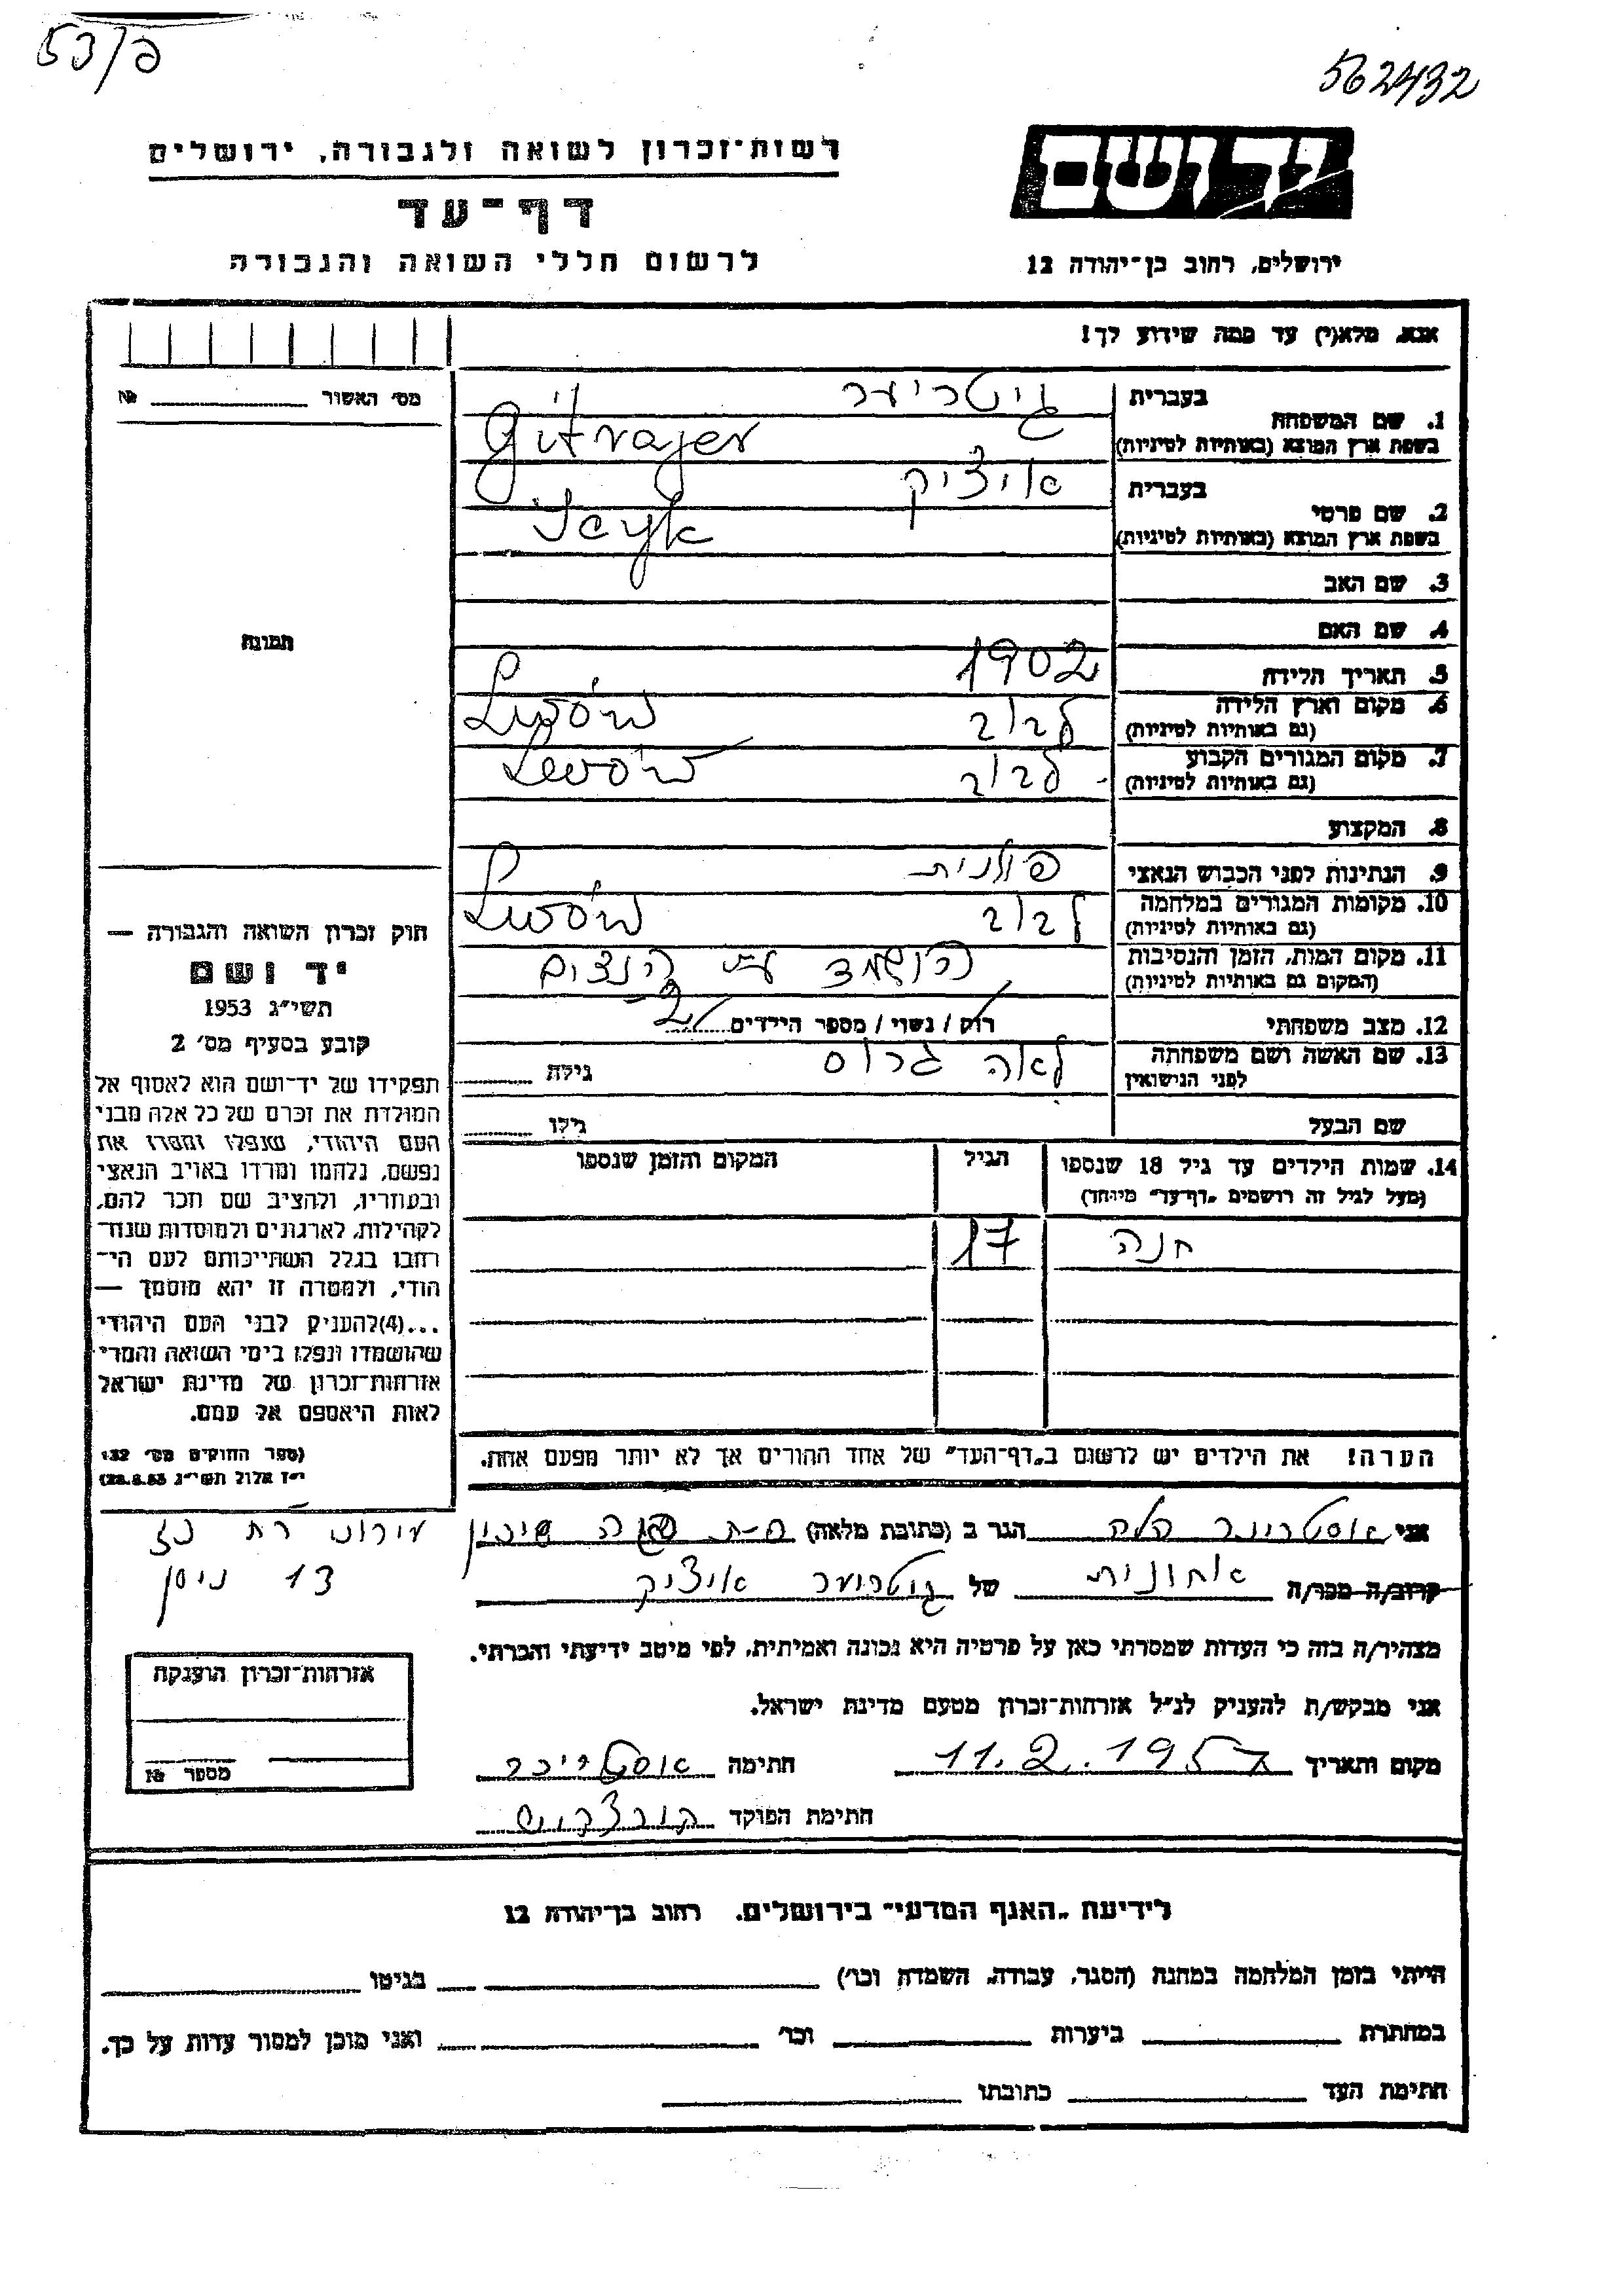 53/פ
562432
רשות־זכרון לשואה ולגבורה, ירושלים
דף־עד
לרשום חללי השואה והגבורה
יד ושם
ירושלים, רחוב בן־יהודה 12
אנא, מלא(י) עד כמה שידוע לך!
מס׳ האשור № 
1. שם המשפחה
בעברית גיטריער
בשפת ארץ המוצא (באותיות לטיניות) Gitrajer
2. שם פרטי
בעברית איציק
בשפת ארץ המוצא (באותיות לטיניות) Icyk
3. שם האב
4. שם האם
5. תאריך הלידה 1902
6. מקום וארץ הלידה לבוב Lwów
(גם באותיות לטיניות)
7. מקום המגורים הקבוע לבוב Lwów
(גם באותיות לטיניות)
8. המקצוע
9. הנתינות לפני הכבוש הנאצי פולנית
10. מקומות המגורים במלחמה לבוב Lwów
(גם באותיות לטיניות)
11. מקום המות, הזמן והנסיבות הושמד ע״י הנצים
(המקום גם באותיות לטיניות)
12. מצב משפחתי רווק / נשוי / מספר הילדים 2
13. שם האשה ושם משפחתה לאה גרוס גילה
לפני הנישואין
שם הבעל גילו
14. שמות הילדים עד גיל 18 שנספו הגיל המקום והזמן שנספו
(מעל לגיל זה רושמים „דף־עד״ מיוחד)
חנה 17
הערה! את הילדים יש לרשום ב„דף־העד״ של אחד ההורים אך לא יותר מפעם אחת.
תמונה
חוק זכרון השואה והגבורה —
יד ושם
תשי״ג 1953
קובע בסעיף מס׳ 2
תפקידו של יד־ושם הוא לאסוף אל
המולדת את זכרם של כל אלה מבני
העם היהודי, שנפלו ומסרו את
נפשם, נלחמו ומרדו באויב הנאצי
ובעוזריו, ולהציב שם וזכר להם,
לקהילות, לארגונים ולמוסדות שנח־
רבו בגלל השתייכותם לעם הי־
הודי, ולמטרה זו יהא מוסמך —
...(4)להעניק לבני העם היהודי
שהושמדו ונפלו בימי השואה והמרי
אזרחות־זכרון של מדינת ישראל
לאות היאספם אל עמם.
(ספר החוקים מס׳ 132
י״ז אלול תשי״ג 28.8.53)
אני הלה הגר ב (כתובת מלאה) שיכון עירוני
13 ניסן
קרוב/ה מכר/ה אחונית של גיטריער איציק
מצהיר/ה בזה כי העדות שמסרתי כאן על פרטיה היא נכונה ואמיתית, לפי מיטב ידיעתי והכרתי.
אני מבקש/ת להעניק לנ״ל אזרחות־זכרון מטעם מדינת ישראל.
מקום ותאריך 11.2.195 חתימה
חתימת הפוקד
אזרחות־זכרון הוענקה
מספר №
לידיעת „האגף המדעי״ בירושלים, רחוב בן־יהודה 12
הייתי בזמן המלחמה במחנה (הסגר, עבודה, השמדה וכו׳) בגיטו
במחתרת ביערות וכו׳ ואני מוכן למסור עדות על כך.
חתימת העד כתובתו